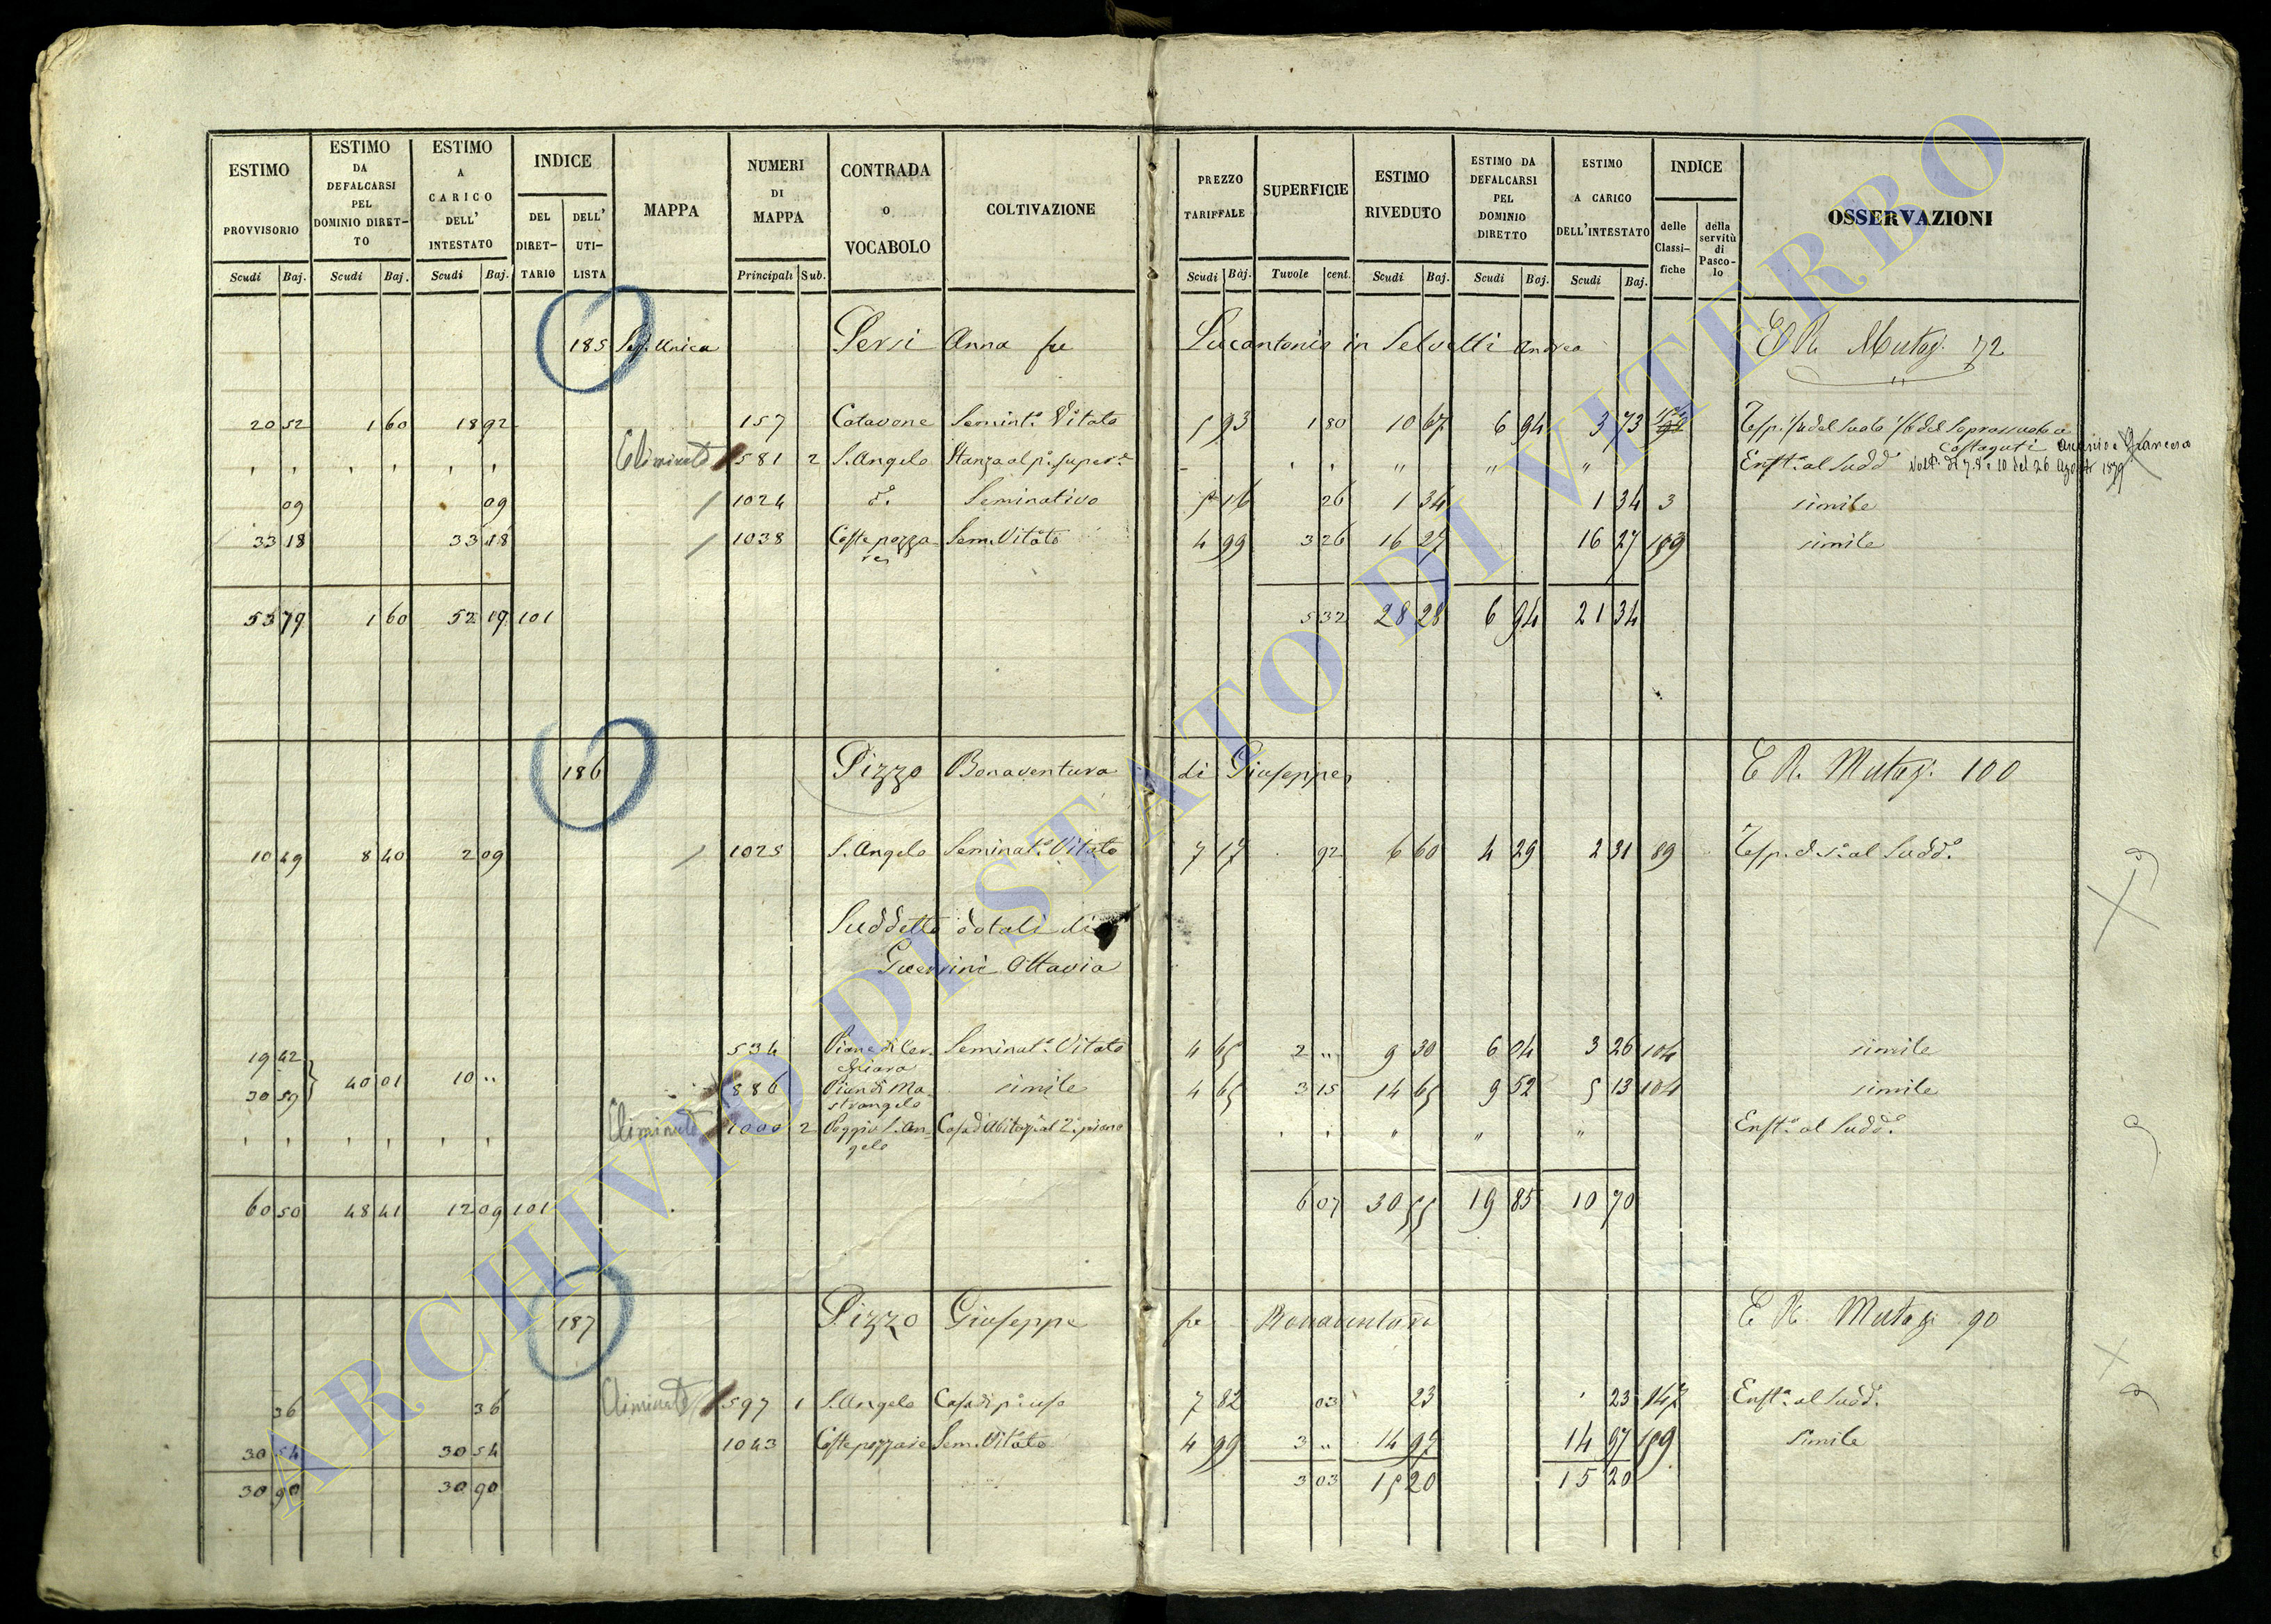 ESTIMO PROVVISORIO Scudi Baj.
ESTIMO DA DEFALCARSI PEL DOMINIO DIRET-TO Scudi Baj.
ESTIMO A CARICO DELL' INTESTATO Scudi Baj.
INDICE DEL DIRET-TARIO DELL' UTI-LISTA
MAPPA
NUMERI DI MAPPA Principali Sub.
CONTRADA o VOCABOLO
COLTIVAZIONE
PREZZO TARIFFALE Scudi Baj.
SUPERFICIE Tavole cent.
ESTIMO RIVEDUTO Scudi Baj.
ESTIMO DA DEFALCARSI PEL DOMINIO DIRETTO Scudi Baj.
ESTIMO A CARICO DELL'INTESTATO Scudi Baj.
INDICE delle Classi-fiche della servitù di Pasco-lo
OSSERVAZIONI
185 Sez. Unica Persi Anna fu Lucantonio in Selvelli Andrea E R. Mutaz. 72
20 52 1 60 18 92 157 Catavone Semint.o Vitato 5 93 1 80 10 67 6 94 3 73
Eliminato 581 2 S. Angelo Stanza al p.o super.e " " " Enft.a al Sudd.
09 09 1024 d.o Seminativo 5 16 26 1 34 1 34 3 simile
33 18 33 18 1038 Coste pozza-re Sem. Vitato 4 99 3 26 16 27 16 27 189 simile
53 79 1 60 52 19 101 5 32 28 28 6 94 21 34
186 Pizzo Bonaventura di Giuseppe E R. Mutaz. 100
10 49 8 40 2 09 1025 S. Angelo Seminat.o Vitato 7 17 92 6 60 4 29 2 31 89 Resp. d. s. al Sudd.o
Suddetto dotali di
Guerrini Ottavia
19 42 534 Piane di Cer-chiara Seminat.o Vitato 4 65 2 " 9 30 6 04 3 26 104 simile
30 59 40 01 10 " 886 Pian di Ma-strangelo simile 4 65 3 15 14 65 9 52 5 13 104 simile
Eliminato 1000 2 Poggio S. An-gelo Casa d'Abitaz. al 2.o piano " " " Enft.a al Sudd.o
60 50 48 41 12 09 101 6 07 30 55 19 85 10 70
187 Pizzo Giuseppe fu Bonaventura E R. Mutaz. 90
36 36 Eliminato 597 1 S. Angelo Casa di p.o uso 7 82 03 23 23 147 Enft.a al Sudd.
30 54 30 54 1043 Coste pozzaie Sem. Vitato 4 99 3 " 14 97 14 97 189 Simile
30 90 30 90 3 03 15 20 15 20
ARCHIVIO DI STATO DI VITERBO